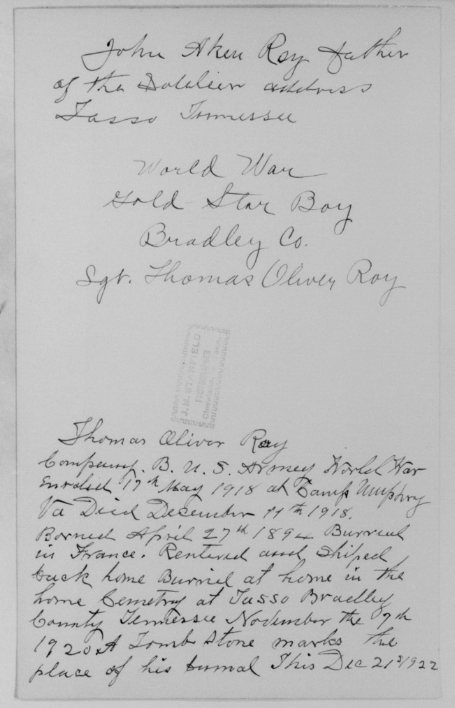 John Aken Roy father
of the Soldier address
Tasso Tennessee
World War
Gold Star Boy
Bradley Co.
Sgt. Thomas Oliver Roy
Thomas Oliver Roy
Company. B. U. S. Armey World War
Enroled 17th May 1918 at Camp Umphry
Va Died Desember 11th 1918.
Borned April 27th 1894 Burried
in France. Rentered and Shiped
back home Burried at home in the
home Cemetry at Tasso Bradley
County Tennessee November the 7th
1920 A Tomb Stone marks the
place of his burial This Dec 21st 1922